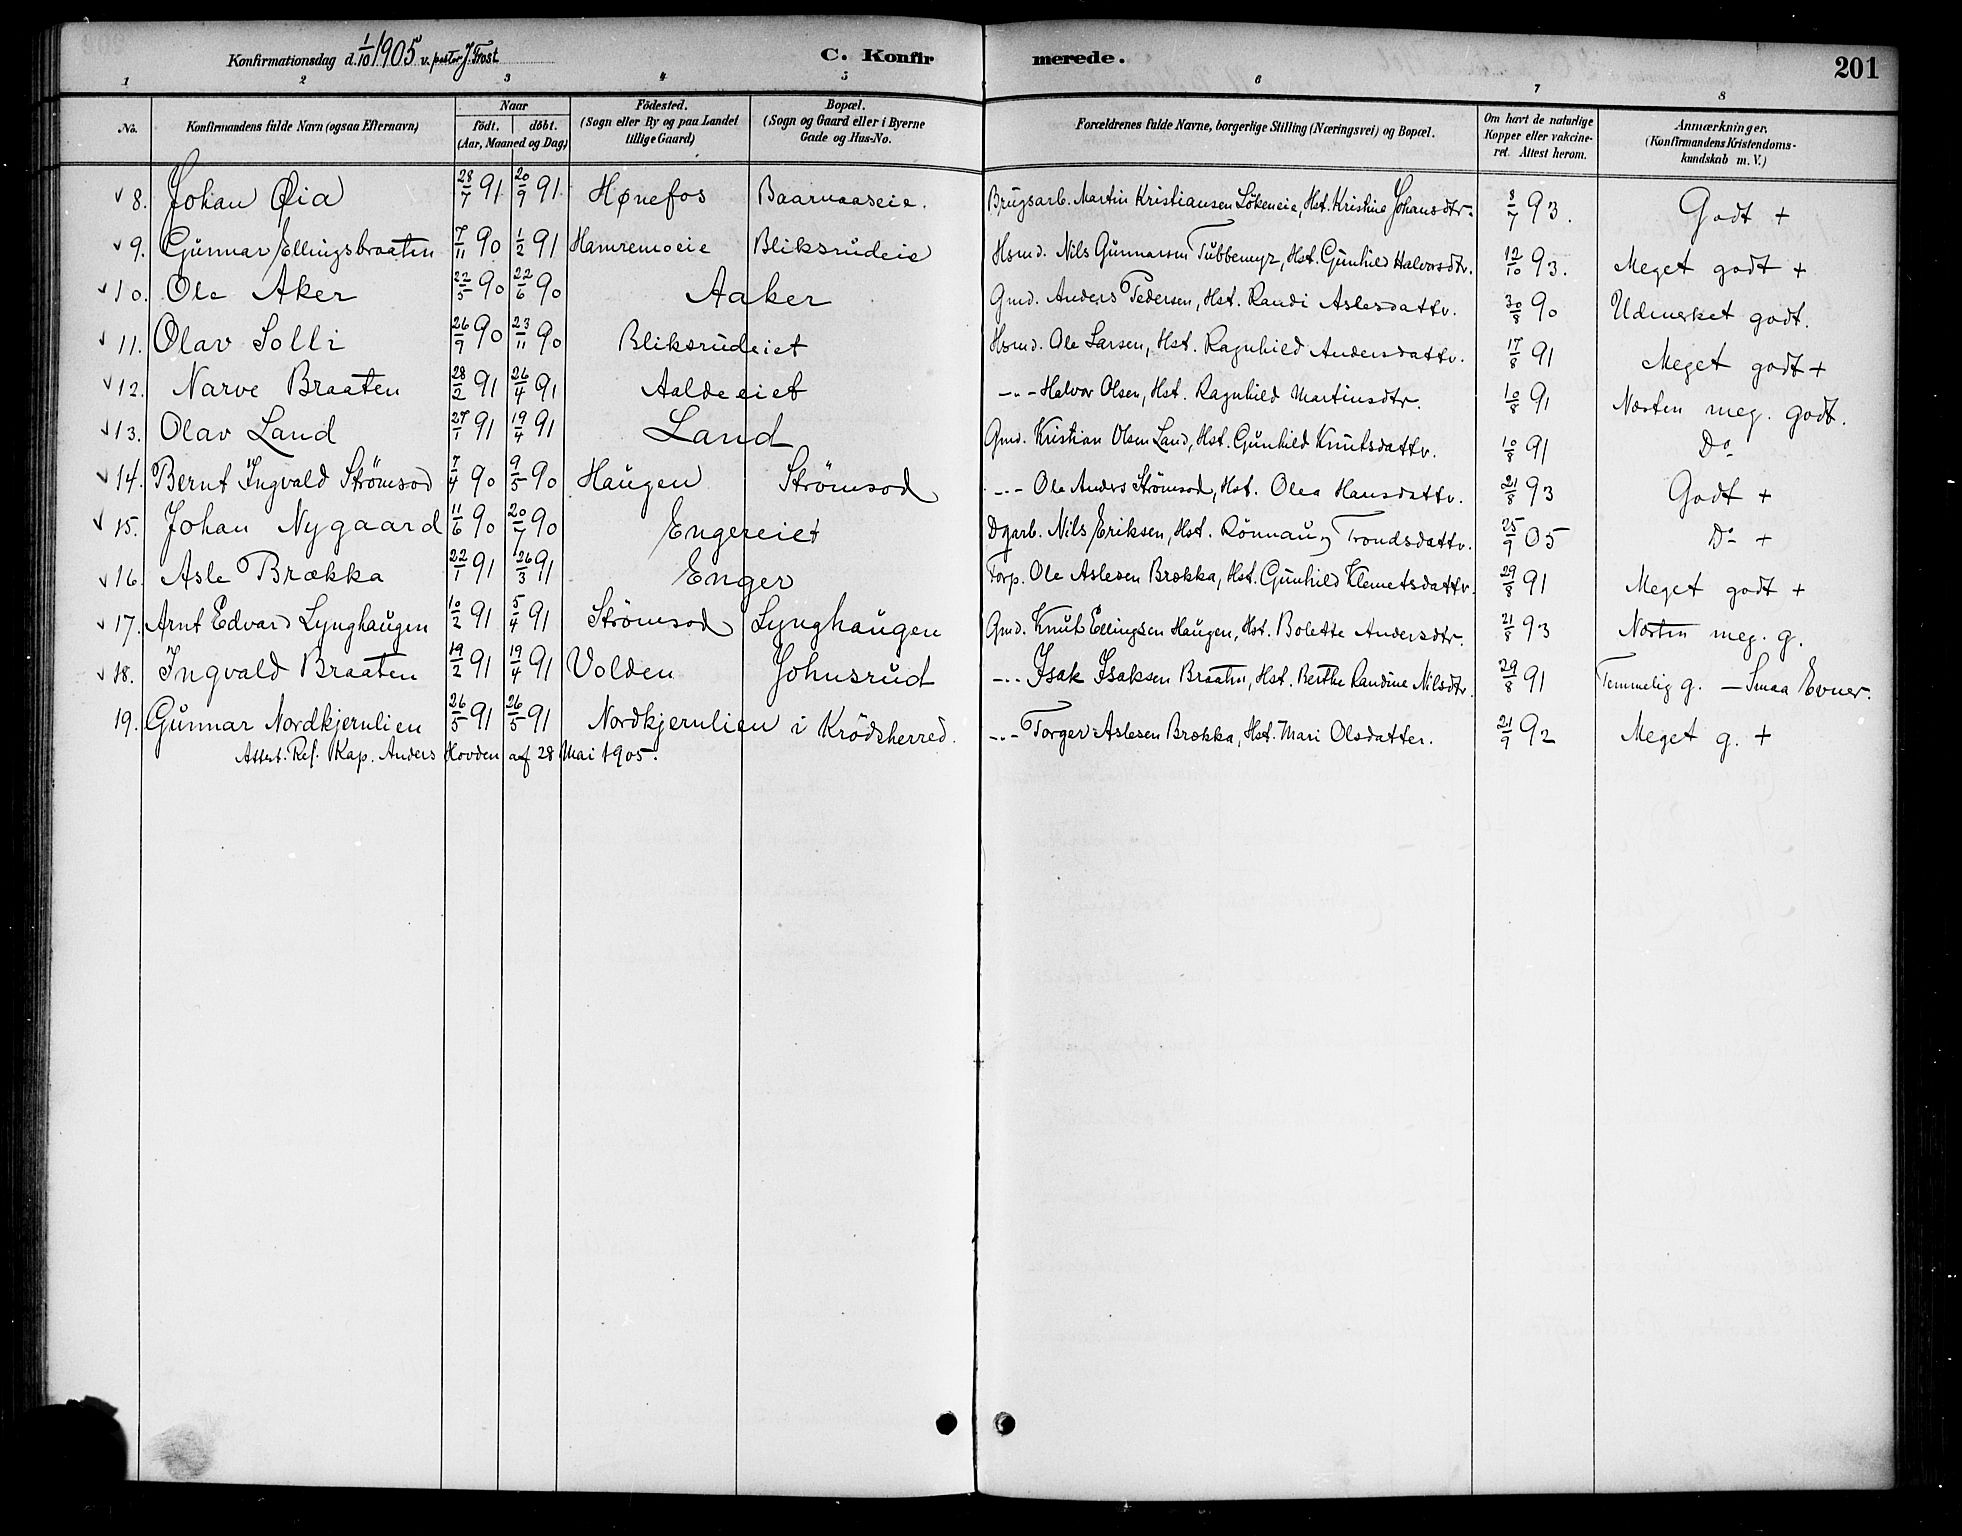 Konfirmationsdag d. 1/10 1905 v. pastor J. Frost
C. Konfirmerede.
201
1 2 3 4 5 6 7 8
No. | Konfirmandens fulde Navn (ogsaa Efternavn) | Naar födt. | döbt. (Aar, Maaned og Dag) | Födested. (Sogn eller By og paa Landet tillige Gaard) | Bopæl. (Sogn og Gaard eller i Byerne Gade og Hus-No. | Forældrenes fulde Navne, borgerlige Stilling (Næringsvei) og Bopæl. | Om havt de naturlige Kopper eller vakcineret. Attest herom. | Anmærkninger. (Konfirmandens Kristendomskundskab m. V.)
8. Johan Øia 28/7 91 20/9 91 Hønefos Baarnaaseie. Brugsarb. Martin Kristiansen Lökeneie, Hst. Kristine Johansdtr. 8/7 93. Godt +
9. Gunnar Ellingsbraaten 7/11 90 1/2 91 Hamremoeie Bliksrudeie Hsmd. Nils Gunnarsen Tubbemyr, Hst. Gunhild Halvorsdtr. 12/10 93. Meget godt +
10. Ole Aker 22/5 90 22/6 90 Aaker Gmd. Anders Pedersen, Hst. Randi Aslesdattr. 30/8 90 Udmerket godt.
11. Olav Solli 26/9 90 23/11 90 Bliksrudeiet Hsmd. Ole Larsen, Hst. Ragnhild Andersdattr. 17/8 91 Meget godt +
12. Narve Braaten 28/2 91 26/4 91 Aaldeeiet -„- Halvor Olsen, Hst. Ragnhild Martinsdtr. 10/8 91 Næsten meg. godt.
13. Olav Land 27/1 91 19/4 91 Land Gmd. Kristian Olsen Land, Hst. Gunhild Knutsdattr. 10/8 91 Do
14. Bernt Ingvald Strömsod 7/4 90 9/5 90 Haugen Strömsod -„- Ole Anders Strömsod, Hst. Olea Hansdattr. 21/8 93 Godt +
15. Johan Nygaard 11/6 90 20/7 90 Engereiet Dgarb. Nils Eriksen, Hst. Rönnaug Trondsdattr. 25/9 05 Do +
16. Asle Brækka 22/1 91 26/3 91 Enger Torp. Ole Aslesen Brækka, Hst. Gunhild Klemetsdattr. 29/8 91 Meget godt +
17. Arnt Edvard Lynghaugen 10/2 91 5/4 91 Strömsod Lynghaugen Gmd. Knut Ellingsen Haugen, Hst. Bolette Andersdtr. 21/8 93 Næsten meg. g.
18. Ingvald Braaten 19/2 91 19/4 91 Volden Johnsrud -„- Isak Isaksen Braaten, Hst. Berthe Randine Nilsdtr. 29/8 91 Temmelig g. – Smaa Evner.
19. Gunnar Nordkjernlien 26/5 91 26/5 91 Nordkjernlien i Krödsherred. -„- Torger Aslesen Brækka, Hst. Mari Olsdatter. 21/9 92 Meget g. +
Attest. Ref. Kap. Anders Hovden af 28 Mai 1905.